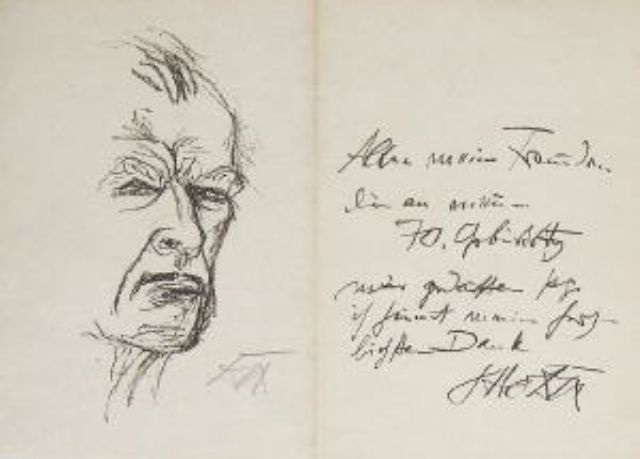 Allen meinen Freunden,
die an meinen
70. Geburtstag
mein gedachten sage
ich hiermit meinen herz-
lichsten Dank